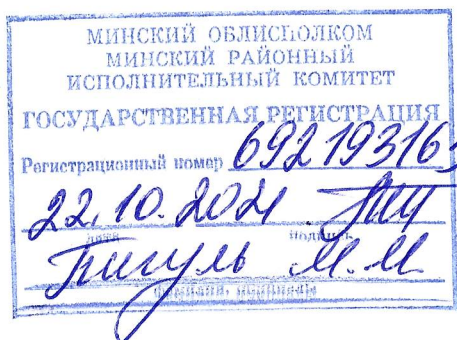 МИНСКИЙ ОБЛИСПОЛКОМ
МИНСКИЙ РАЙОННЫЙ
ИСПОЛНИТЕЛЬНЫЙ КОМИТЕТ
ГОСУДАРСТВЕННАЯ РЕГИСТРАЦИЯ
Регистрационный номер 692193165
22.10.2021
дата подпись
Пигуль М.М
фамилия, инициалы